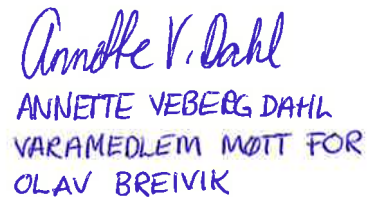 Annette V. Dahl
ANNETTE VEBERG DAHL
VARAMEDLEM MØTT FOR
OLAV BREIVIK